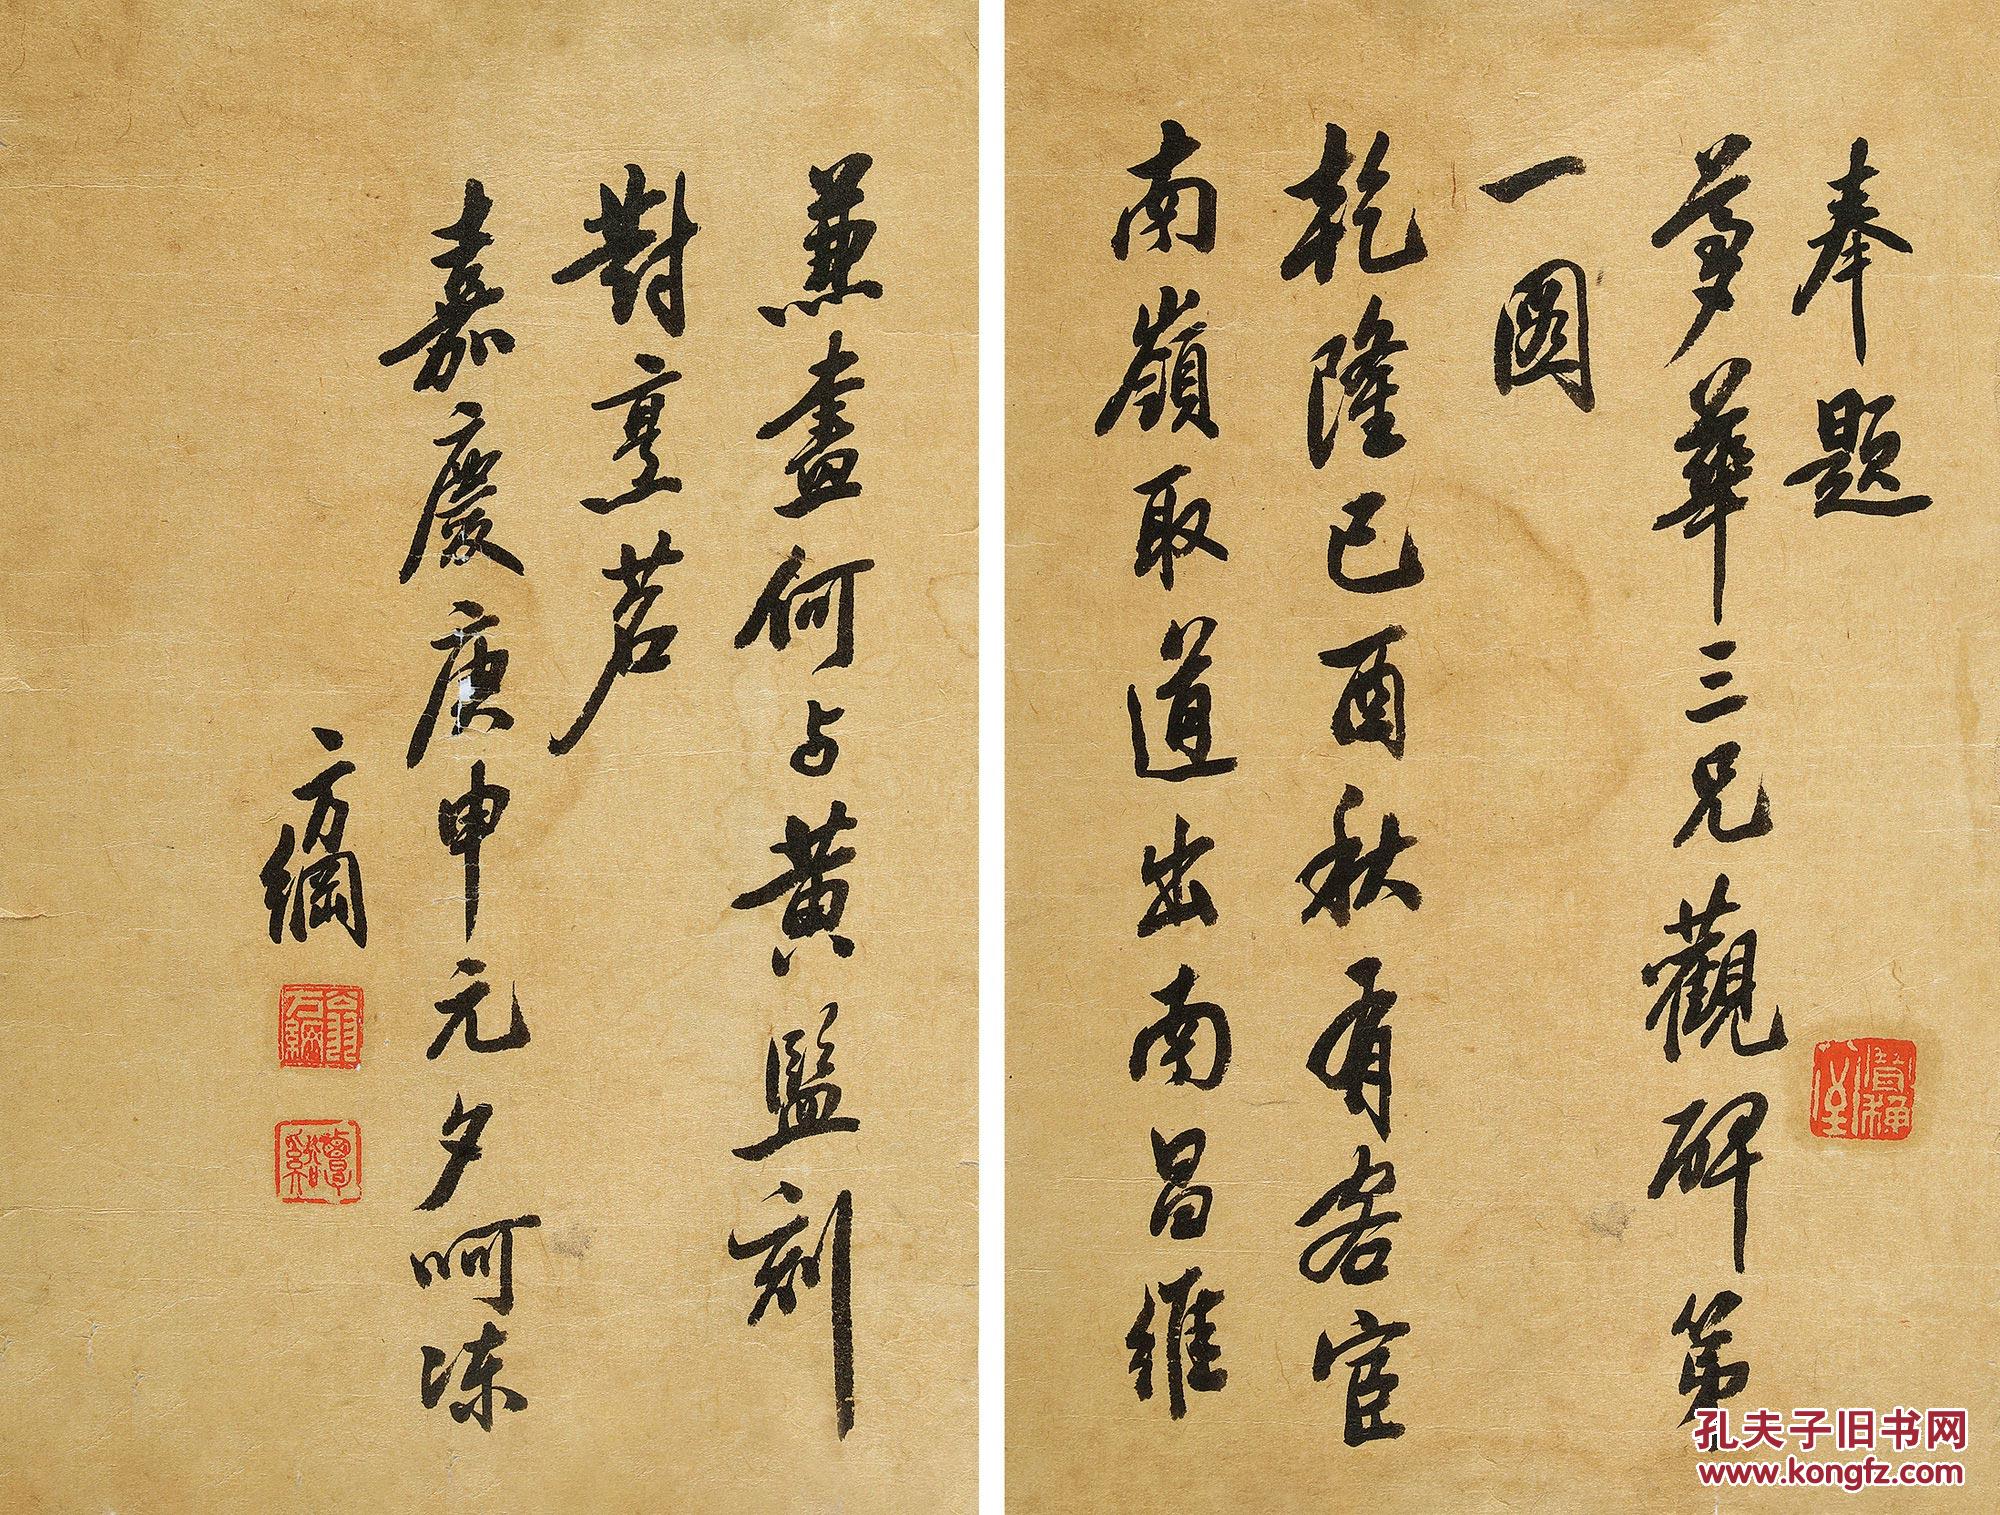 奉題
夢華三兄觀碑第
一圖
乾隆己酉秋有客宦
南嶺取道出南昌維
兼畫何与黃監刻
對烹茗
嘉慶庚申元夕呵凍
方綱
翁方綱
覃谿
孔夫子旧书网
www.kongfz.com